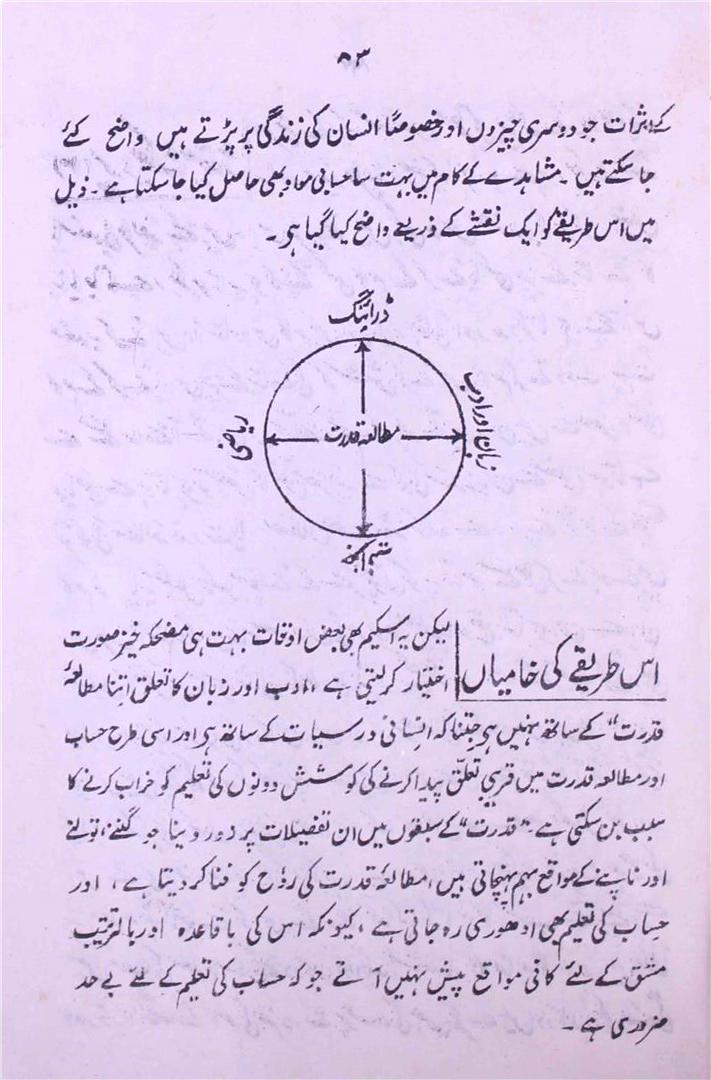 ۸۳
کے اثرات جو دوسری چیزوں اور خصوصاً انسان کی زندگی پر پڑتے ہیں واضح کئے
جا سکتے ہیں۔ مشاہدے کے کام میں بہت سا حسابی مواد بھی حاصل کیا جا سکتا ہے۔ ذیل
میں اس طریقے کو ایک نقشے کے ذریعے واضح کیا گیا ہو۔
ڈرائنگ
زبان اور ادب
مطالعہ قدرت
ریاضی
لیکن یہ اسکیم بھی بعض اوقات بہت ہی مضحکہ خیز صورت
اس طریقے کی خامیاں
اختیار کر لیتی ہے، ادب اور زبان کا تعلق اتنا مطالعۂ
قدرت" کے ساتھ نہیں ہو جتنا کہ انسانی درسیات کے ساتھ ہو اور اسی طرح حساب
اور مطالعہ قدرت میں قریبی تعلق پیدا کرنے کی کوشش دونوں کی تعلیم کو خراب کرنے کا
سبب بن سکتی ہے۔ "قدرت" کے سبقوں میں ان تفصیلات پر زور دینا جو گننے، تولنے
اور ناپنے کے مواقع بہم پہنچاتی ہیں، مطالعۂ قدرت کی روح کو فنا کر دیتا ہے، اور
حساب کی تعلیم بھی ادھوری رہ جاتی ہے، کیونکہ اس کی باقاعدہ اور بالترتیب
مشق کے لئے کافی مواقع پیش نہیں آتے جو کہ حساب کی تعلیم کے لئے بے حد
ضروری ہے۔